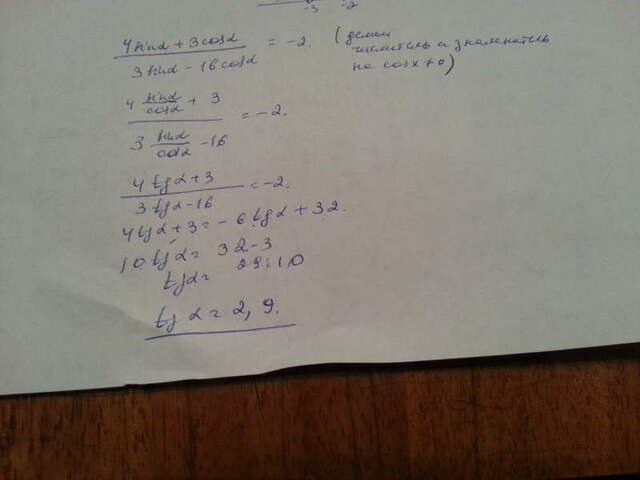 -3 -2
4sinα + 3cosα / 3sinα - 16cosα = -2. (делим числитель и знаменатель на cosx≠0)
4 sinα/cosα + 3 / 3 sinα/cosα - 16 = -2.
4tgα + 3 / 3tgα - 16 = -2.
4tgα + 3 = -6tgα + 32.
10tgα = 32-3
tgα = 29:10
tgα = 2,9.